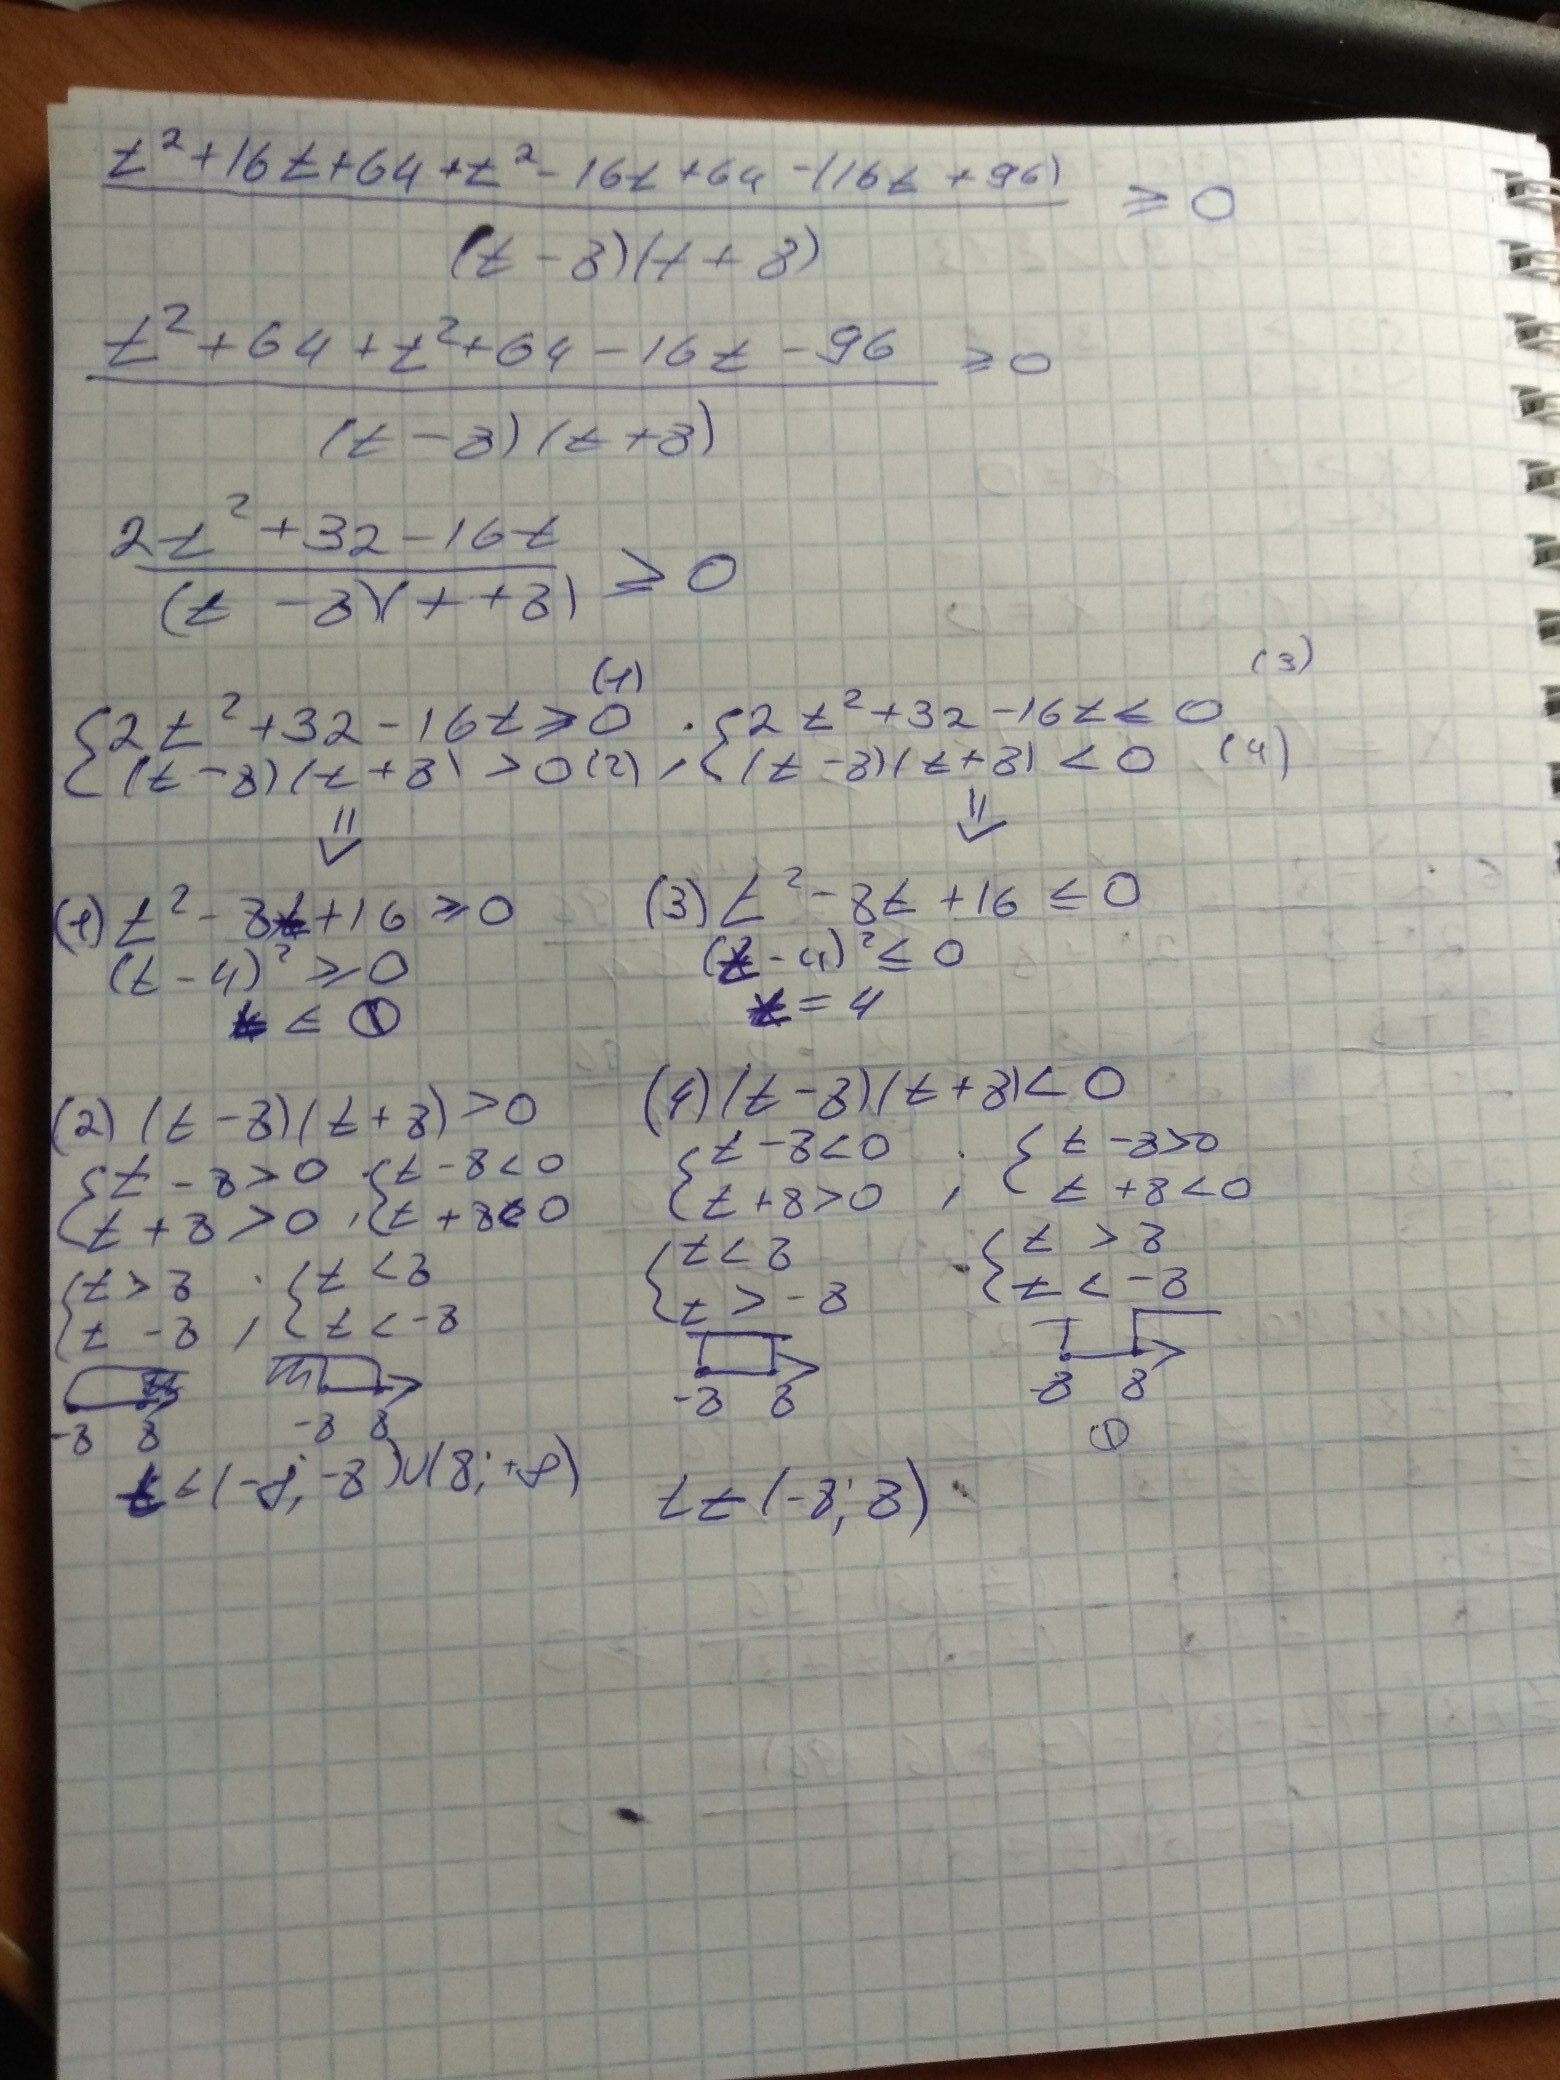 t² + 16t + 64 + t² - 16t + 64 - (16t + 96) ≥ 0
(t - 8)(t + 8)
t² + 64 + t² + 64 - 16t - 96 ≥ 0
(t - 8)(t + 8)
2t² + 32 - 16t ≥ 0
(t - 8)(t + 8)
{2t² + 32 - 16t ≥ 0 (1) ; {2t² + 32 - 16t ≤ 0 (3)
(t - 8)(t + 8) > 0 (2) (t - 8)(t + 8) < 0 (4)
⇓ ⇓
(1) t² - 8t + 16 ≥ 0
(t - 4)² ≥ 0
(3) t² - 8t + 16 ≤ 0
(t - 4)² ≤ 0
t = 4
(2) (t - 8)(t + 8) > 0
{t - 8 > 0 ; {t - 8 < 0
t + 8 > 0 t + 8 < 0
{t > 8 ; {t < 8
t - 8 t < -8
-8 8 -8 8
t ∈ (-∞; -8) ∪ (8; +∞)
(4) (t - 8)(t + 8) < 0
{t - 8 < 0 ; {t - 8 > 0
t + 8 > 0 t + 8 < 0
{t < 8 {t > 8
t > -8 t < -8
-8 8 -8 8
t ∈ (-8; 8)